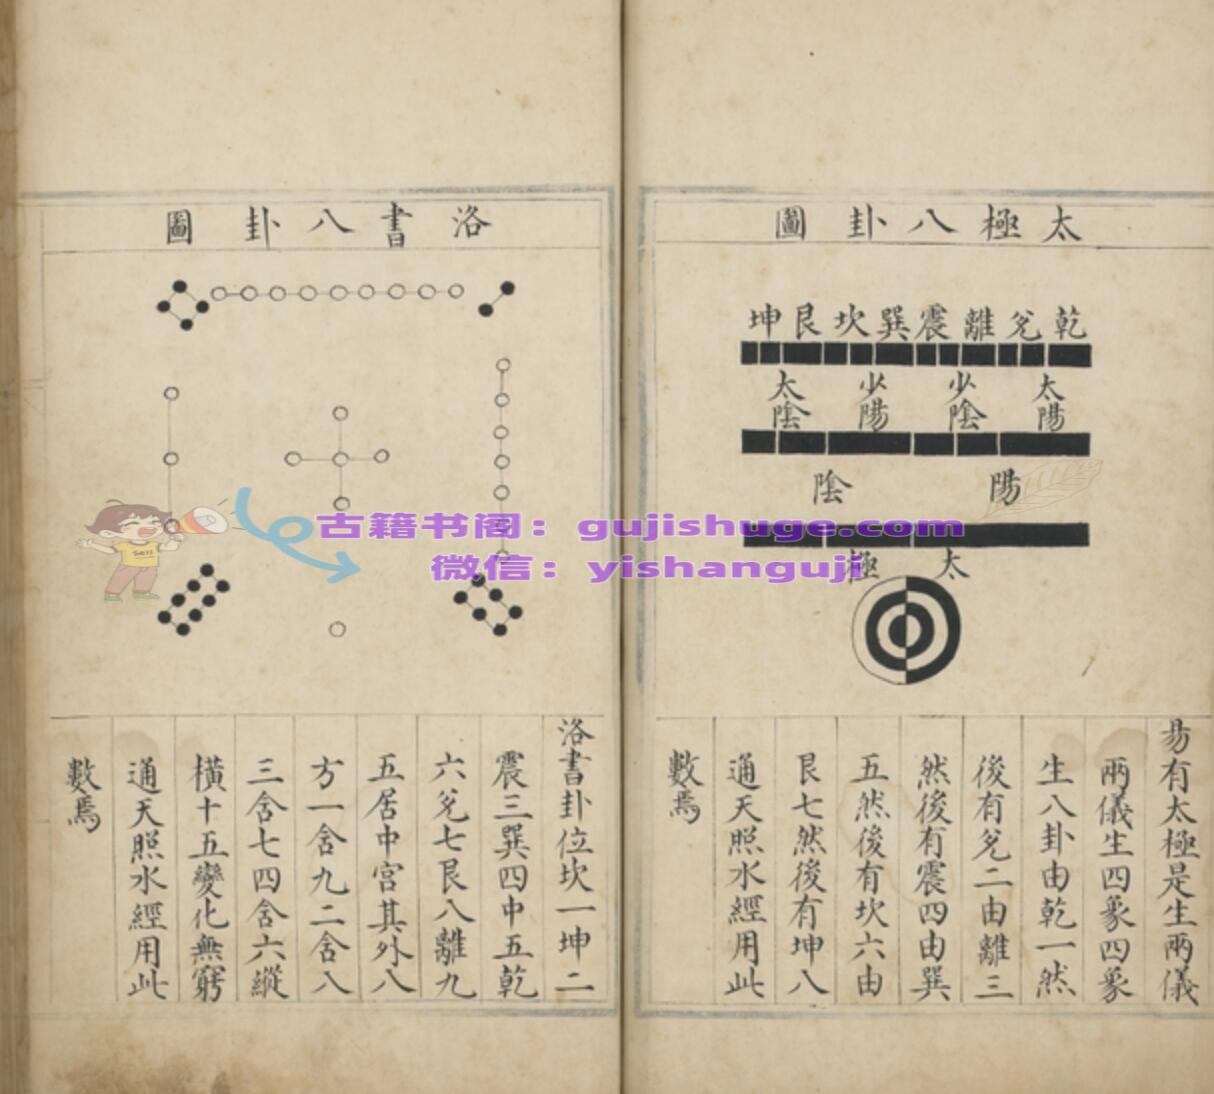 太極八卦圖
乾兌離震巽坎艮坤
太陽 少陰 少陽 太陰
陽 陰
太極
易有太極是生兩儀
兩儀生四象四象
生八卦由乾一然
後有兌二由離三
然後有震四由巽
五然後有坎六由
艮七然後有坤八
通天照水經用此
數焉
洛書八卦圖
洛書卦位坎一坤二
震三巽四中五乾
六兌七艮八離九
五居中宮其外八
方一含九二含八
三含七四含六縱
橫十五變化無窮
通天照水經用此
數焉
古籍书阁：gujishuge.com
微信：yishanguji
Sell